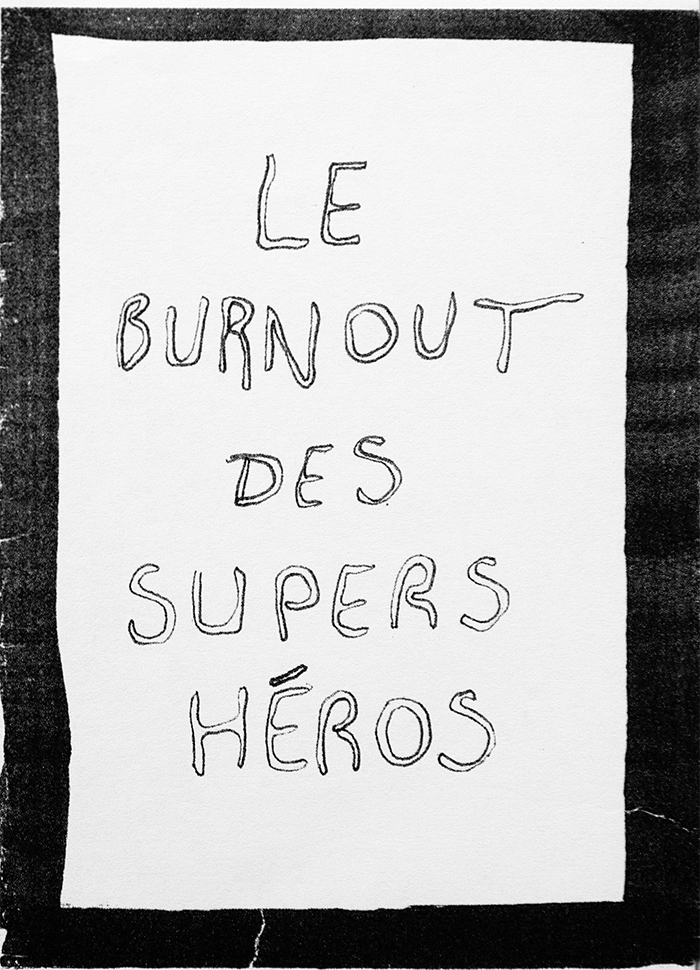 LE
BURNOUT
DES
SUPERS
HÉROS